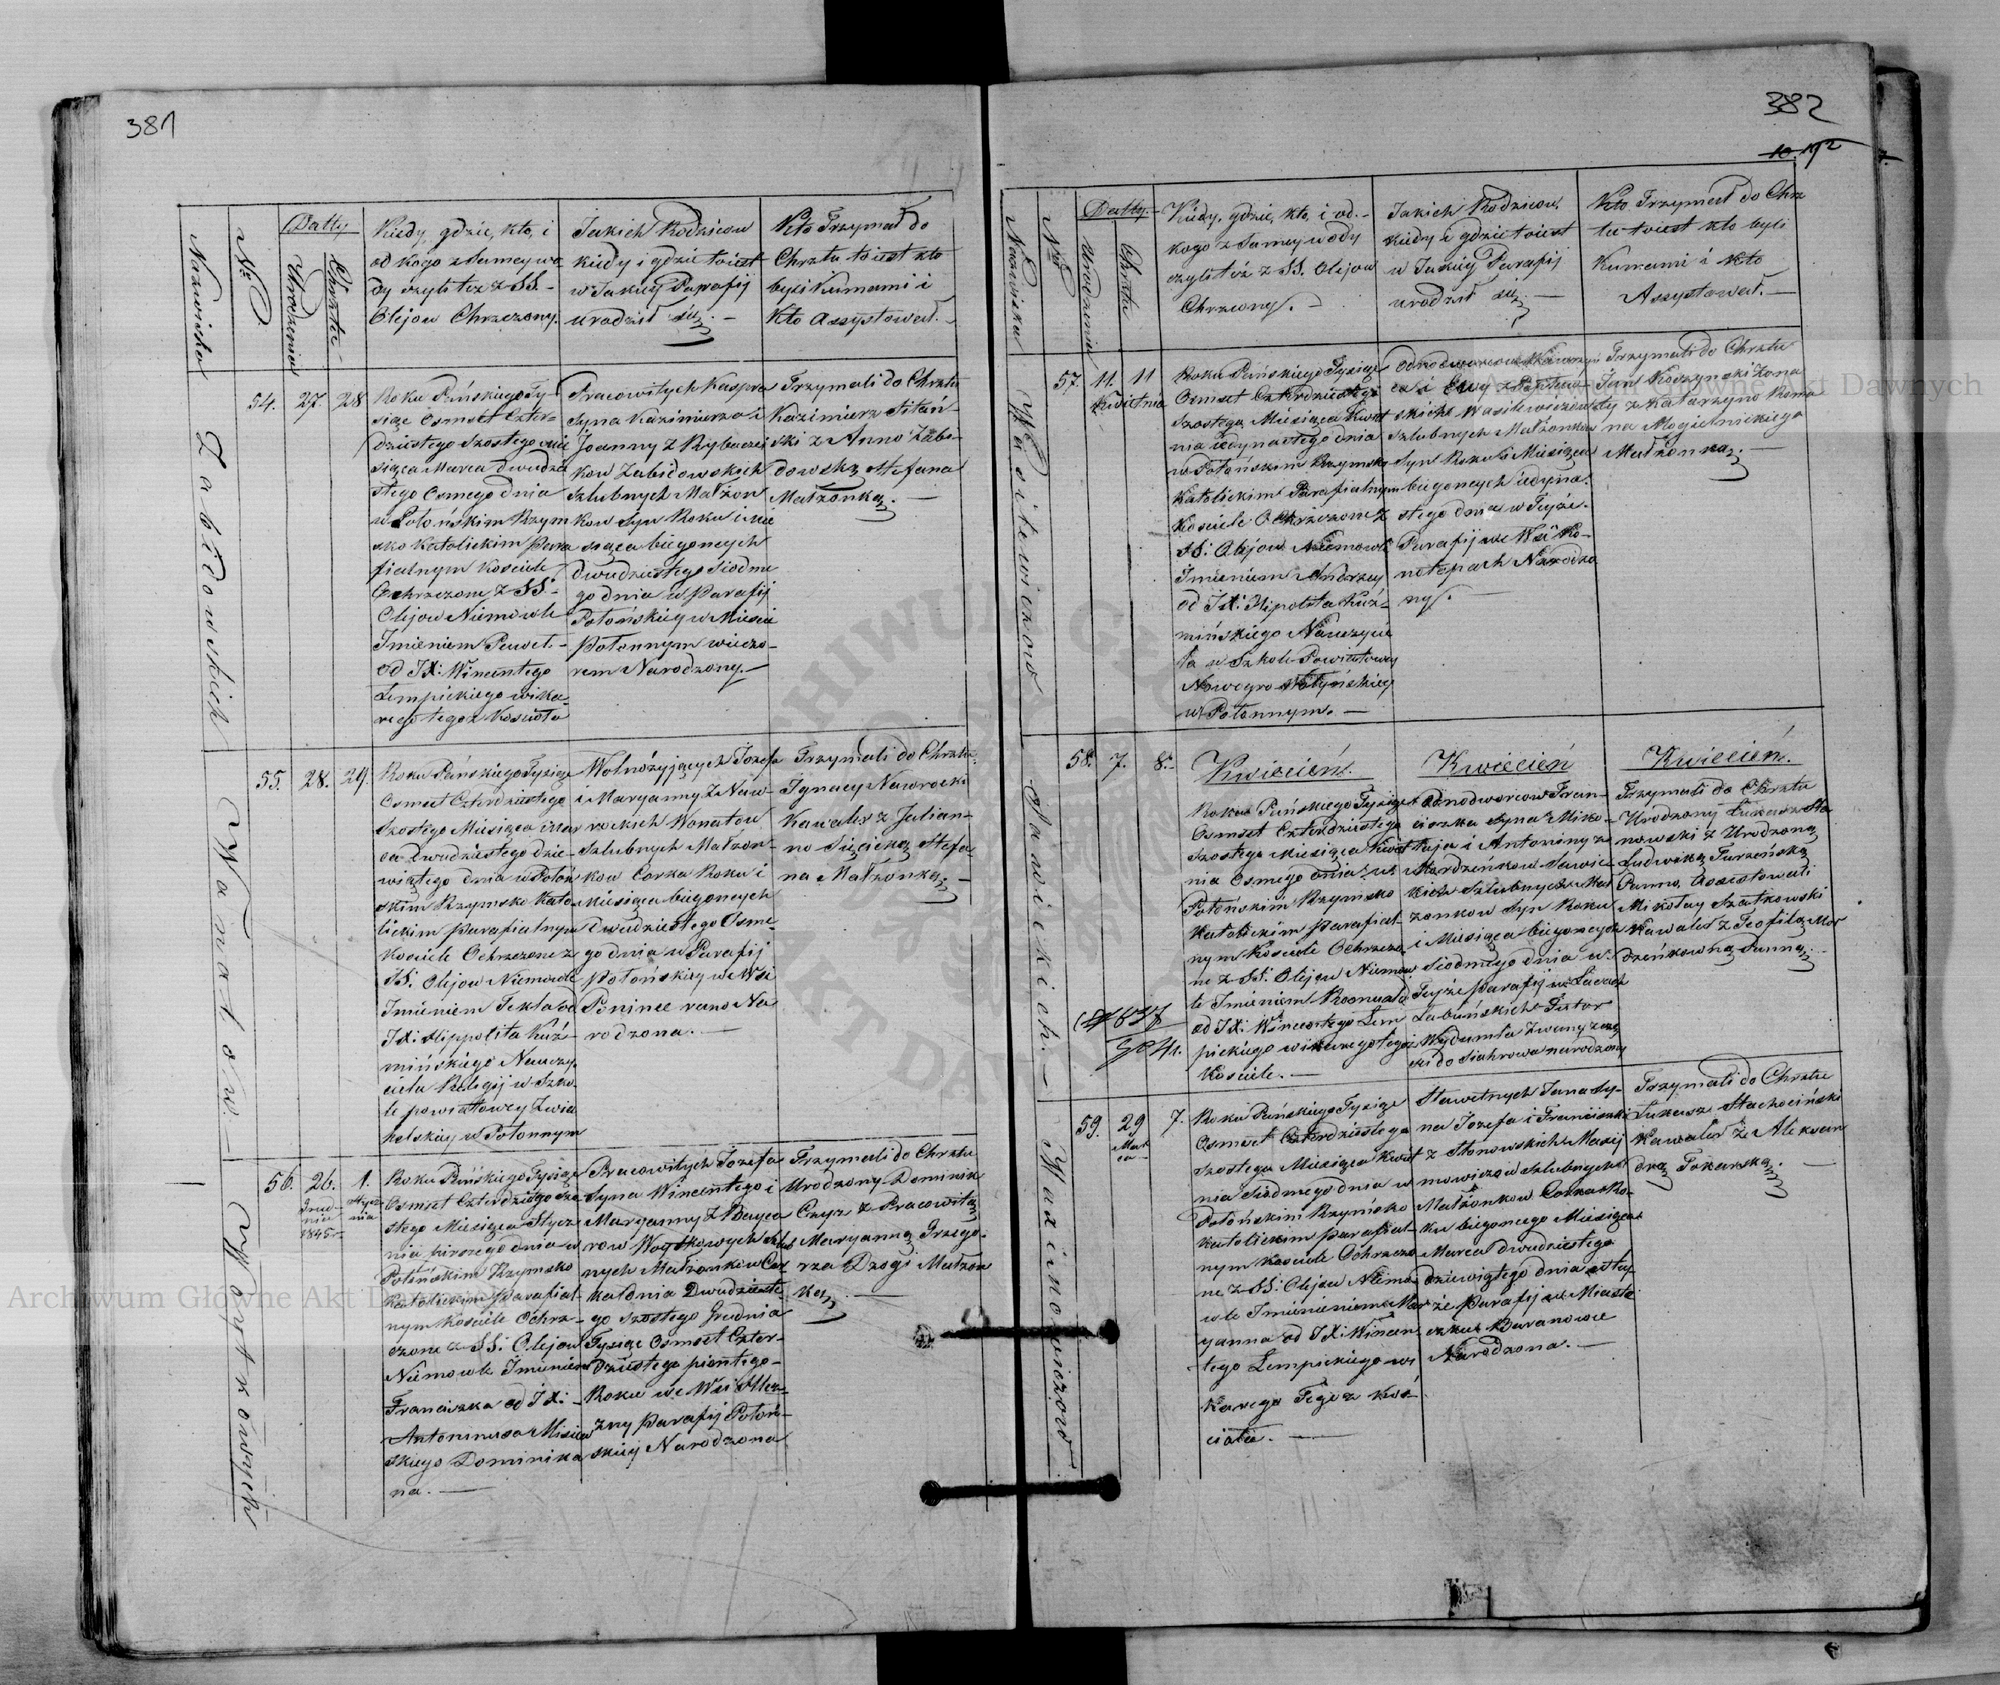 381
Nazwisko
No
Datty
Urodzenia
Chrztu
Kiedy, gdzie, kto, i
od kogo z samey wo
dy czyli też z SS.
Olejow Chrzczony.
Jakich Rodzicow
kiedy i gdzie to iest
w Jakiey Parafij
urodził się. —
Kto Trzymał do
Chrztu to iest kto
byli Kumami i
Kto Assystował. —
Zabidowskich
54.
27.
28
Roku Pańskiego Ty
siąc Osmset Czter-
dziestego Szostego mie
siąca Marca Dwudzie
stego Osmego dnia
w Połońskim Rzym
sko Katolickim Para
fialnym Kosciele
Ochrzczone z SS.
Olejow Niemowle
Imieniem Paweł -
od JX: Wincentego
Łempickiego wika-
rego tegoż Kościoła
Pracowitych Kaspra
Syna Kazimierza i
Joanny z Rybaczei
kow Zabidowskich
szlubnych Małżon
kow Syn Roku i mie
siąca bieżących
Dwudziestego Siodme
go dnia w Parafij
Połońskiey w Mieście
Połonnym wieczo-
rem Narodzony. —
Trzymali do Chrztu
Kazimierz
ski z Anno Zabi-
dowską Stefana
Małżonką. —
Wanatow. —
55.
28.
29.
Roku Pańskiego Tysiąc
Osmset Czterdziestego
Szostego Miesiąca Mar
ca Dwudziestego Dzie-
wiątego dnia w Połoń
skim Rzymsko Kato
lickim Parafialnym
Kosciele Ochrzczone z
SS. Olejow Niemowle
Imieniem Tekla od
JX: Hippolita Kuź-
mińskiego Nauczy-
ciela Religij w Szko
le powiatowey Zwia
helskiey w Połonnym
Wolnożyjących Jozefa
i Maryanny z Naw-
rockich Wanatow
Szlubnych Małżon-
kow Corka Roku i
miesiąca bieżących
Dwudziestego Osme-
go dnia w Parafij
Połońskiey we Wsi
Poninee rano Na
rodzona. —
Trzymali do Chrztu
Ignacy Nawrocki
Kawaler z Julian-
no Stefa-
na Małżonką. —
56.
26.
Grud-
nia
1845
1.
Stycz
nia
Roku Pańskiego Tysiąc
Osmset Czterdziestego Szo
stego Miesiąca Stycz-
nia pierszego dnia w
Połońskim Rzymsko
Katolickim Parafial-
nym Kosciele Ochrz-
czone z SS. Olejow
Niemowle Imieniem
Franciszka od JX: -
Antoninusa
skiego Dominika
na. —
Pracowitych Jozefa
Syna Wincentego i
Maryanny z
row szlub
nych Małżonkow Cor
ka dnia Dwudzieste
go szostego Grudnia
Tysiąc Osmset Czter-
dziestego piontego -
Roku we Wsi
Parafij Połoń-
skiey Narodzona
Trzymali do Chrztu
Urodzony Dominik
z Pracowitą
Maryanną Grzego-
rza Małżon
ką. —
382
10. 192
Nazwiska
No
Datty
Urodzenia
Chrztu
Kiedy, gdzie, kto, i od -
kogo z samey wody
czyli też z SS. Olejow
Chrzczony. —
Jakich Rodzicow
kiedy i gdzie to iest
w Jakiey Parafij
urodził się. —
Kto Trzymał do Chrz
tu to iest kto byli
Kumami i kto
Assystował. —
Wasilewiczow
57.
11.
11
Kwietnia
Roku Pańskiego Tysiąc
Osmset Czterdziestego
Szostego Miesiąca Kwiet
nia iedynastego dnia
w Połońskim Rzymsko
Katolickim Parafialnym
Kosciele Ochrzczone z
SS: Olejow Niemowle
Imieniem Andrzey
od JX: Hipolita Kuź-
mińskiego Nauczycie
la w Szkole Powiatowey
Nowogro Wołyńskiey
w Połonnym. —
Odnodworcow
ca i Ewy z
skich Wasilewiczow
szlubnych Małżonkow
Syn Roku i Miesiąca
bieżących iedyna-
stego dnia w Teyże
Parafij we Wsi Ko-
notopach Narodzo
ny. —
Trzymali do Chrztu
Jan Koszynski
z Katarzyno Roma
na Mogielnickiego
Małżonką. —
Sawickich. —
58.
7.
8.
Kwiecień.
Roku Pańskiego Tysiąc
Osmset Czterdziestego
Szostego Miesiąca Kwiet
nia Osmego dnia w
Połońskim Rzymsko
Katolickim Parafial-
nym Kosciele Ochrzczo
ne z SS. Olejow Niemow
le Imieniem Romuald
od JX: Wincentego Łem
pickiego wikarego tegoż
Kosciele. —
Kwiecień
Odnodworcow Fran-
ciszka syna Miko-
łaja i Antoniny z
Mordzeńkow Sawic
kich Szlubnych Mał
żonkow Syn Roku
i Miesiąca bieżących
Siodmego dnia w
Teyże Parafij w Lasach
Labuńskich Futor
Wydumka Zwany
narodzony
Kwiecień.
Trzymali do Chrztu
Urodzony Łukasz Sta
nowski z Urodzoną
Ludwiką Turzeńską
Panno, Assistowali
Mikołay Szatkowski
Kawaler z Teofilą Mor
dzeńkowną Panną. —
59.
29
Mar
ca
7.
Roku Pańskiego Tysiąc
Osmset Czterdziestego
Szostego Miesiąca Kwiet
nia Siodmego dnia w
Połońskim Rzymsko
Katolickim parafial-
nym Kosciele Ochrzczo
ne z SS: Olejow Niemo
wle Imieniem Mar
yanna od JX: Wincen
tego Łempickiego wi
karego Tegoż Koś
cioła. —
Sławetnych Jana Sy-
na Jozefa i Franciszki
z Stonowskich Maxi
mowiczow szlubnych
Małżonkow Corka Ro-
ku bieżącego Miesiąca
Marca dwudziestego
dziewiątego dnia w tey
że Parafij w Miaste
czku Baranowce
Narodzona. —
Trzymali do Chrztu
Łukasz Stachociński
Kawaler z Aleksan
drą Tokarską. —
Maximowiczow
Archiwum Główne Akt Dawnych